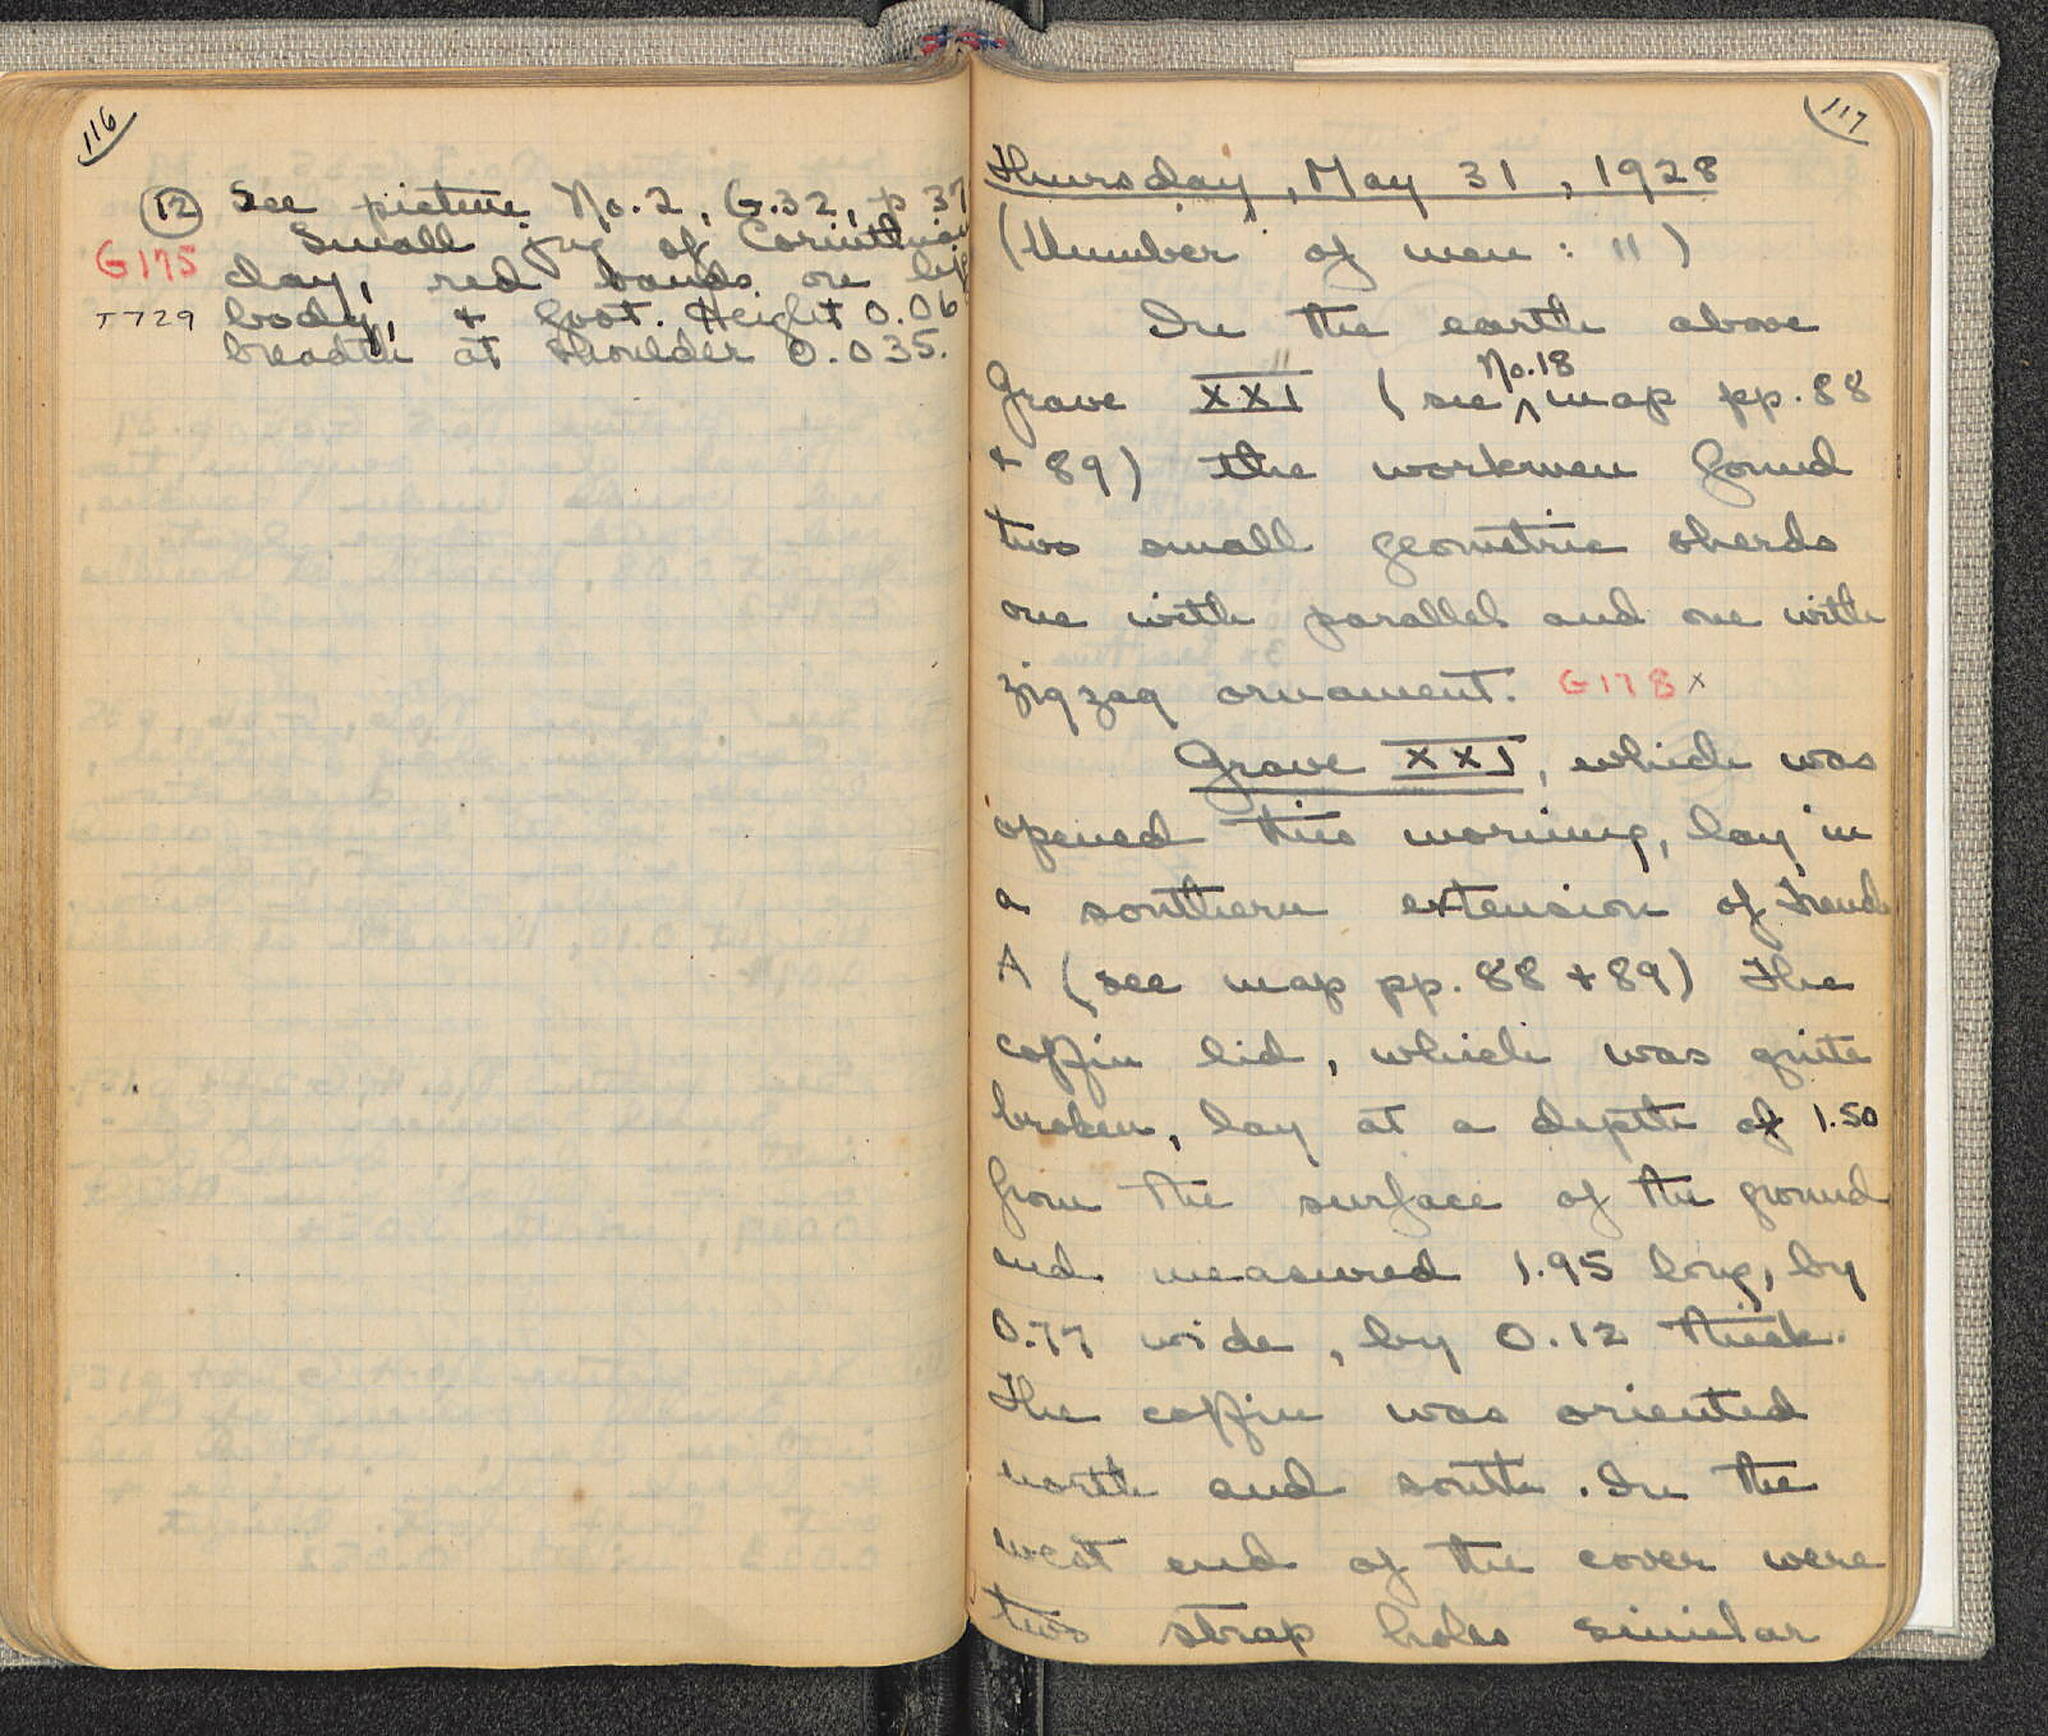 116
(12) See picture No. 2, G.32, p 37
Small jug of Corinthian
G175
clay, red bands on lip
T729
body, + foot. Height 0.06
breadth at shoulder 0.035.
117
Thursday, May 31, 1928
(Number of men: 11)
In the earth above
Grave XXI (see No. 18 map pp. 88
+ 89) the workmen found
two small geometric sherds
one with parallel and one with
zigzag ornament. G178 x
Grave XXI, which was
opened this morning, lay in
a southern extension of Trench
A (see map pp. 88 + 89) The
coffin lid, which was quite
broken, lay at a depth of 1.50
from the surface of the ground
and measured 1.95 long, by
0.77 wide, by 0.12 thick.
The coffin was oriented
north and south. In the
west end of the cover were
two strap holes similar